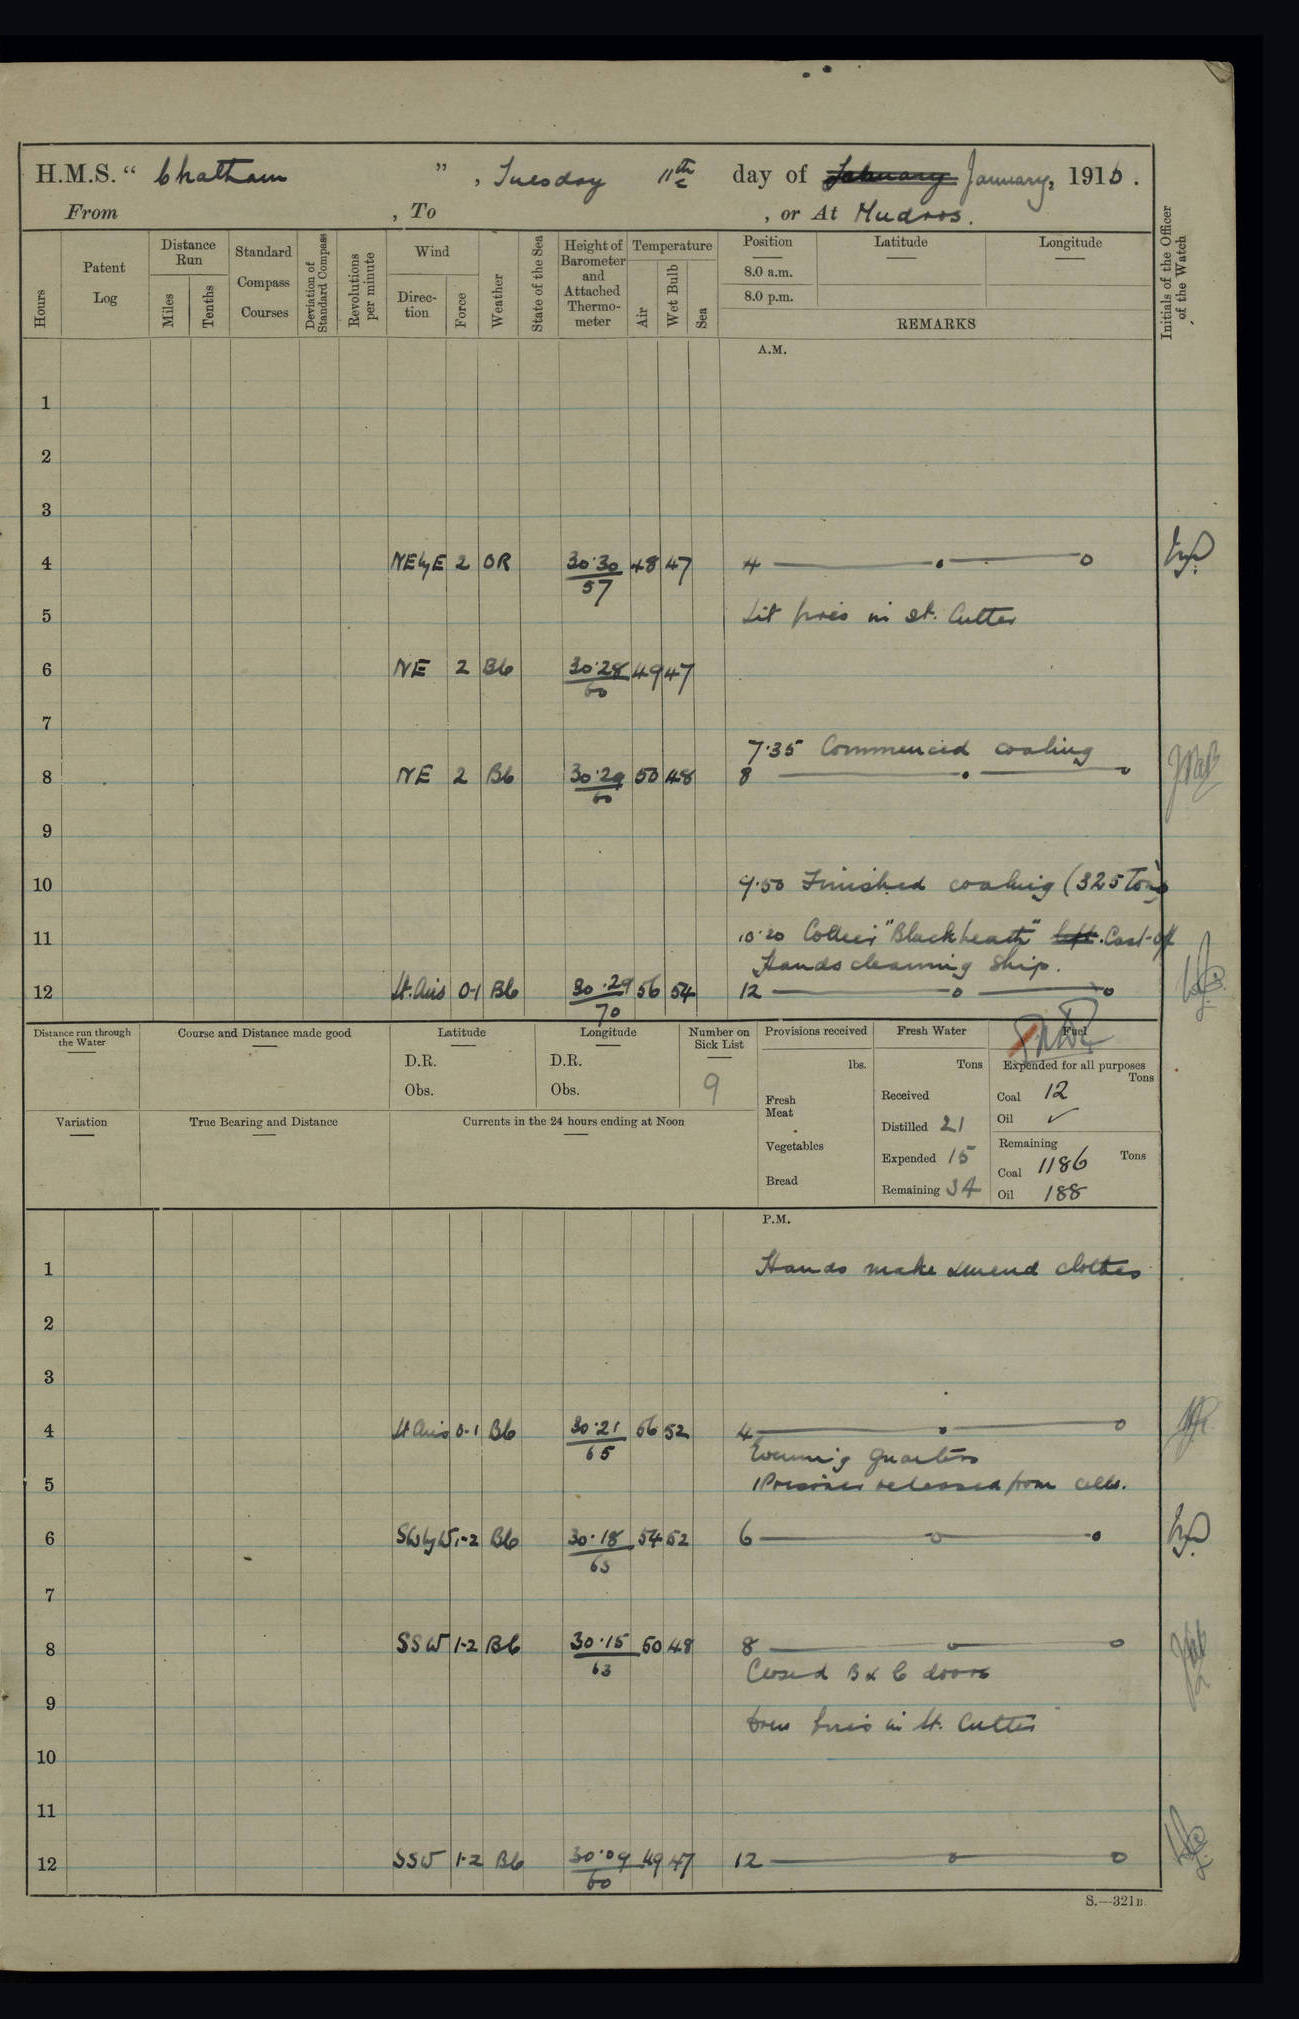 H.M.S. “ Chatham ” , Tuesday 11th day of January, 1916.
From , To , or At Mudros.
Hours
Patent Log
Distance Run
Miles
Tenths
Standard Compass Courses
Deviation of Standard Compass
Revolutions per minute
Wind
Direction
Force
Weather
State of the Sea
Height of Barometer and Attached Thermometer
Temperature
Air
Wet Bulb
Sea
Position
8.0 a.m.
8.0 p.m.
Latitude
Longitude
REMARKS
Initials of the Officer of the Watch
A.M.
1
2
3
4 NEbyE 2 OR 30.30 57 48 47 4
5 Lit fires in St. Cutter
6 NE 2 Bb 30.28 60 49 47
7
7.35 Commenced coaling
8 NE 2 Bb 30.29 60 50 48 8
9
10 9.50 Finished coaling (325 Tons)
11 10.20 Collier "Blackheath" left. Cast-off
Hands cleaning ship.
12 Lt. Airs 0-1 Bb 30.29 70 56 54 12
Distance run through the Water
Course and Distance made good
Latitude
D.R.
Obs.
Longitude
D.R.
Obs.
Number on Sick List
9
Provisions received
lbs.
Fresh Meat
Vegetables
Bread
Fresh Water
Tons
Received
Distilled 21
Expended 15
Remaining 34
Fuel
Expended for all purposes
Tons
Coal 12
Oil ✓
Remaining
Tons
Coal 1186
Oil 188
Variation
True Bearing and Distance
Currents in the 24 hours ending at Noon
P.M.
1 Hands make & mend clothes
2
3
4 Lt Airs 0-1 Bb 30.21 65 56 52 4
Evening Quarters
5 1 Prisoner released from cells.
6 SWbyW 1-2 Bb 30.18 63 54 52 6
7
8 SSW 1-2 Bb 30.15 63 50 48 8
Closed B & C doors
9
Drew fires in St. Cutter
10
11
12 SSW 1-2 Bb 30.09 60 49 47 12
S.—321B.